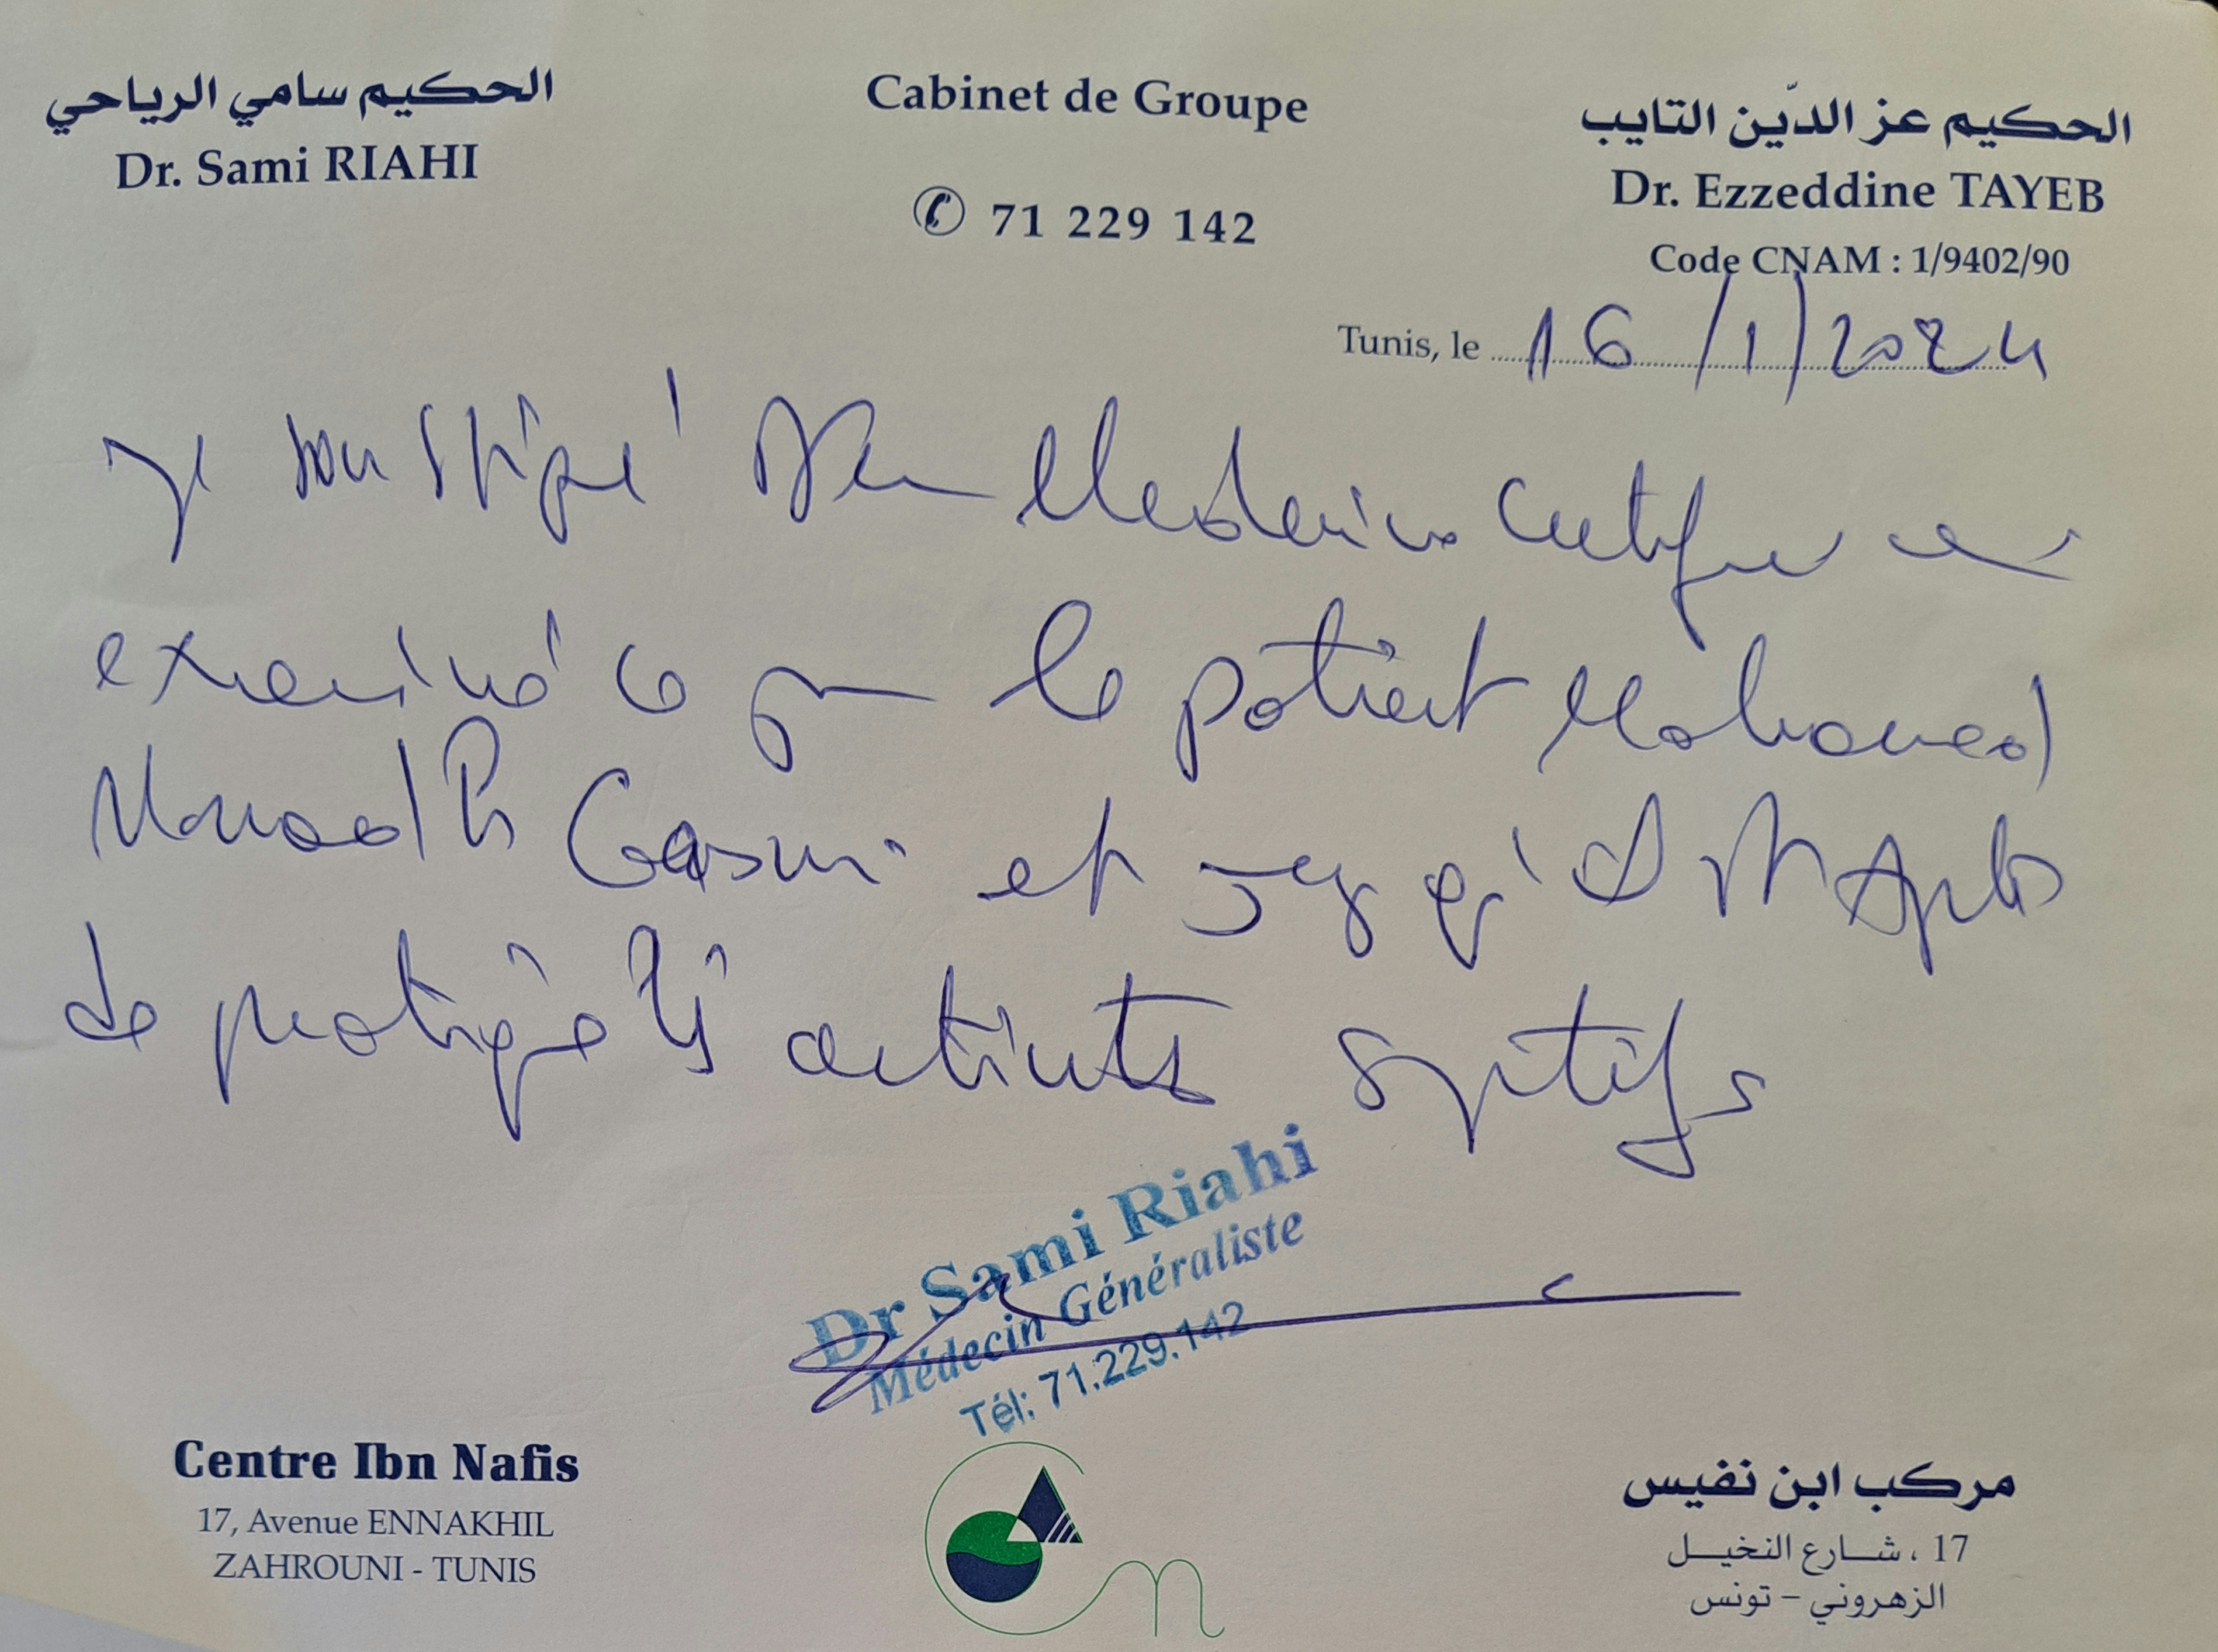 الحكيم سامي الرياحي
Dr. Sami RIAHI
Cabinet de Groupe
✆ 71 229 142
الحكيم عز الدّين التايب
Dr. Ezzeddine TAYEB
Code CNAM : 1/9402/90
Tunis, le 16/1/2024
Je soussigné Medecin certifie
examiné ce jour le patient Mohamed
Gasmi et
de pratiquer activités sportifs
Dr Sami Riahi
Médecin Généraliste
Tél: 71.229.142
Centre Ibn Nafis
17, Avenue ENNAKHIL
ZAHROUNI - TUNIS
مركب ابن نفيس
17 ، شارع النخيل
الزهروني - تونس